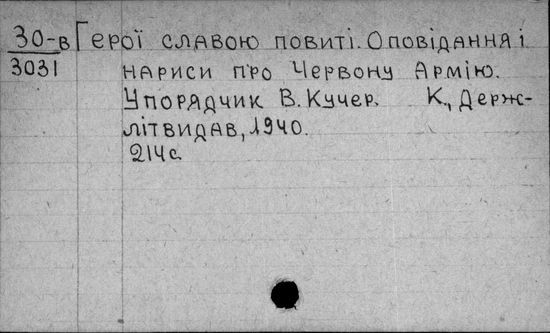 30-в Герої славою повиті. Оповідання і
3031 нариси про Червону Армію.
Упорядчик В. Кучер. К., Держ-
літвидав, 1940.
214с.